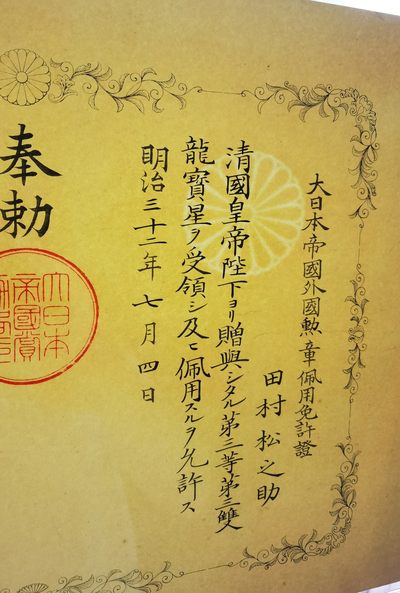 大日本帝國外國勲章佩用免許證
田村松之助
清國皇帝陛下ヨリ贈與シタル第三等第三雙
龍寳星ヲ受領シ及ヒ佩用スルヲ允許ス
明治三十二年七月四日
奉勅
大日本
帝國賞